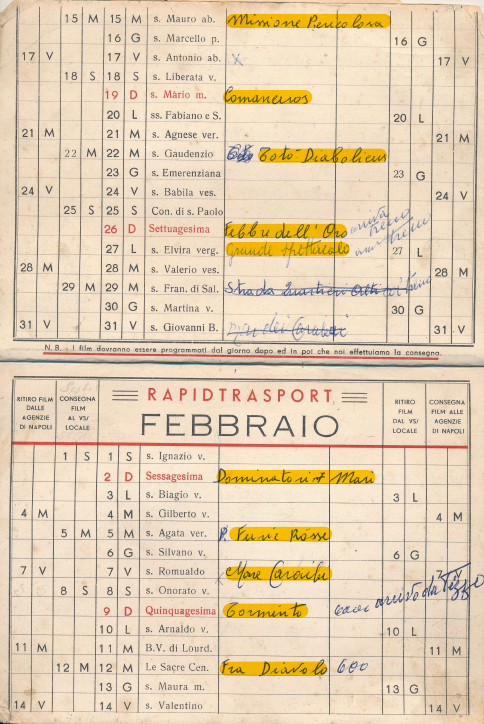 15 M 15 M s. Mauro ab. Missione Pericolosa
16 G s. Marcello p. 16 G
17 V 17 V s. Antonio ab. x 17 V
18 S 18 S s. Liberata v.
19 D s. Mario m. Comanceros
20 L ss. Fabiano e S. 20 L
21 M 21 M s. Agnese ver. 21 M
22 M 22 M s. Gaudenzio Totò Diabolicus
23 G s. Emerenziana 23 G
24 V 24 V s. Babila ves. 24 V
25 S 25 S Con. di s. Paolo
26 D Settuagesima Febbre dell'Oro
27 L s. Elvira verg. Grande Spettacolo 27 L
28 M 28 M s. Valerio ves. 28 M
29 M 29 M s. Fran. di Sal. Strada Quartieri Alti
30 G s. Martina v. 30 G
31 V 31 V s. Giovanni B. 31 V
N. B. - I film dovranno essere programmati dal giorno dopo ed in poi che noi effettuiamo la consegna.
RAPIDTRASPORT
FEBBRAIO
RITIRO FILM DALLE AGENZIE DI NAPOLI
CONSEGNA FILM AL VS/ LOCALE
RITIRO FILM DAL VS/ LOCALE
CONSEGNA FILM ALLE AGENZIE DI NAPOLI
1 S 1 S s. Ignazio v.
2 D Sessagesima Dominatori 7 Mari
3 L s. Biagio v. 3 L
4 M 4 M s. Gilberto v. 4 M
5 M 5 M s. Agata ver. P. Furie Rosse
6 G s. Silvano v. 6 G
7 V 7 V s. Romualdo x Mare Caraibi 7 V
8 S 8 S s. Onorato v.
9 D Quinquagesima Tormento arrivo da
10 L s. Arnaldo v. 10 L
11 M 11 M B.V. di Lourd. 11 M
12 M 12 M Le Sacre Cen. Fra Diavolo 600
13 G s. Maura m. 13 G
14 V 14 V s. Valentino 14 V